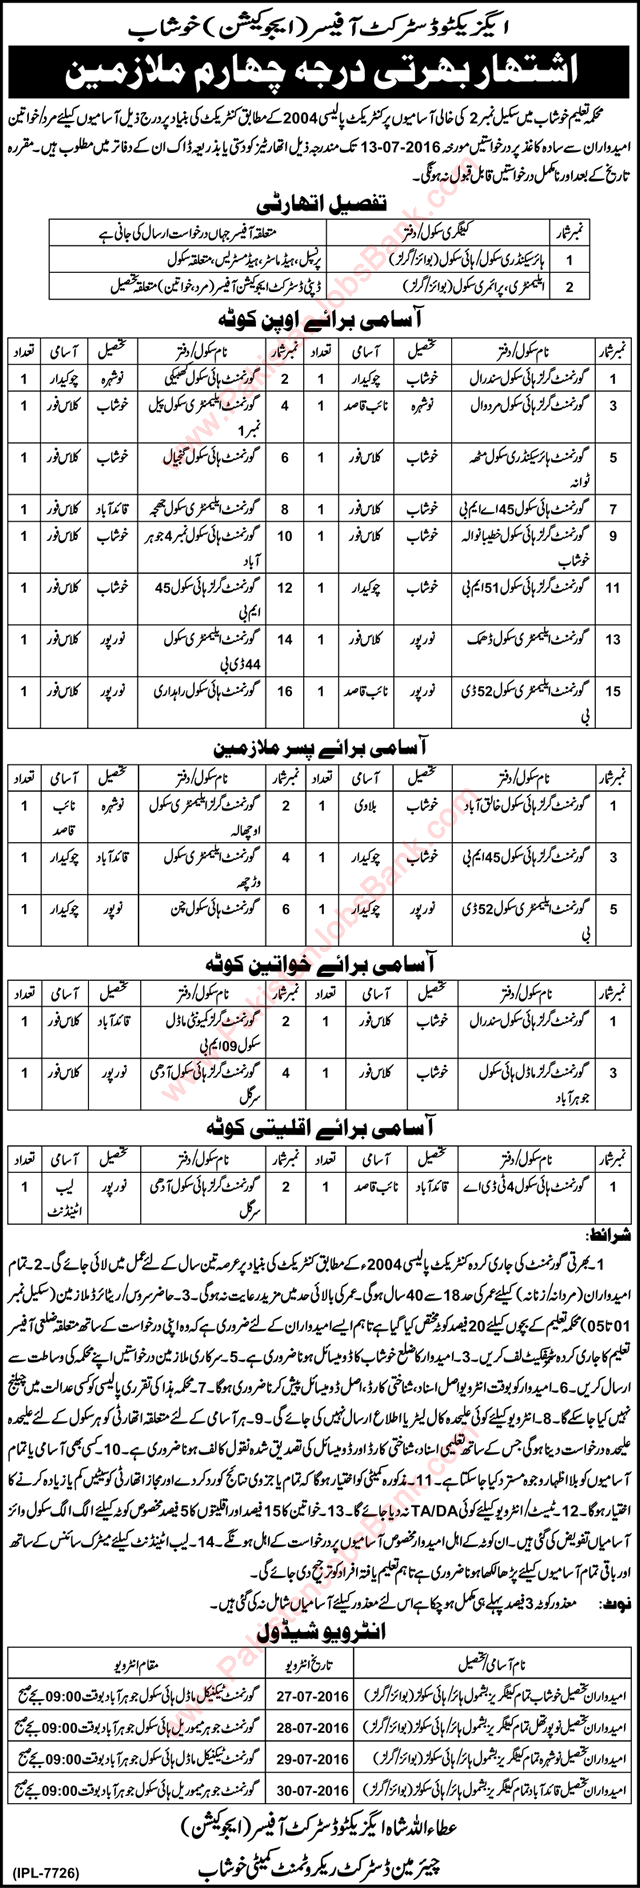 ایگزیکٹو ڈسٹرکٹ آفیسر (ایجوکیشن) خوشاب
اشتہار بھرتی درجہ چہارم ملازمین
محکمہ تعلیم خوشاب میں سکیل نمبر 2 کی خالی آسامیوں پر کنٹریکٹ پالیسی 2004 کے مطابق کنٹریکٹ کی بنیاد پر درج ذیل آسامیوں کیلئے مرد/خواتین
امیدواران سے سادہ کاغذ پر درخواستیں مورخہ 2016-07-13 تک مندرجہ ذیل اتھارٹیز کو دستی یا بذریعہ ڈاک ان کے دفاتر میں مطلوب ہیں۔ مقررہ
تاریخ کے بعد اور نامکمل درخواستیں قابل قبول نہ ہونگی۔
تفصیل اتھارٹی
نمبر شمار | کیٹگری سکول/دفتر | متعلقہ آفیسر جہاں درخواست ارسال کی جانی ہے
1 | ہائر سیکنڈری سکول/ہائی سکول (بوائز/گرلز) | پرنسپل، ہیڈ ماسٹر، ہیڈ مسٹریس، متعلقہ سکول
2 | ایلیمنٹری، پرائمری سکول (بوائز/گرلز) | ڈپٹی ڈسٹرکٹ ایجوکیشن آفیسر (مرد، خواتین) متعلقہ تحصیل
آسامی برائے اوپن کوٹہ
نمبر شمار | نام سکول/دفتر | تحصیل | آسامی | تعداد | نمبر شمار | نام سکول/دفتر | تحصیل | آسامی | تعداد
1 | گورنمنٹ گرلز ہائی سکول سندرال | خوشاب | چوکیدار | 1 | 2 | گورنمنٹ ہائی سکول کھبیکی | نوشہرہ | چوکیدار | 1
3 | گورنمنٹ گرلز ہائی سکول مردوال | نوشہرہ | نائب قاصد | 1 | 4 | گورنمنٹ ایلیمنٹری سکول پیل
نمبر 1 | خوشاب | کلاس فور | 1
5 | گورنمنٹ ہائر سیکنڈری سکول مٹھہ
ٹوانہ | خوشاب | کلاس فور | 1 | 6 | گورنمنٹ ہائی سکول گنجیال | خوشاب | کلاس فور | 1
7 | گورنمنٹ ہائی سکول 45 اے ایم بی | خوشاب | کلاس فور | 1 | 8 | گورنمنٹ ایلیمنٹری سکول جھجہ | قائد آباد | کلاس فور | 1
9 | گورنمنٹ گرلز ہائی سکول خطیبانوالہ
خوشاب | خوشاب | کلاس فور | 1 | 10 | گورنمنٹ ہائی سکول نمبر 4 جوہر
آباد | خوشاب | کلاس فور | 1
11 | گورنمنٹ گرلز ہائی سکول 51 ایم بی | خوشاب | چوکیدار | 1 | 12 | گورنمنٹ گرلز ہائی سکول 45
ایم بی | خوشاب | کلاس فور | 1
13 | گورنمنٹ ایلیمنٹری سکول ڈھمک | نور پور | کلاس فور | 1 | 14 | گورنمنٹ ایلیمنٹری سکول
44 ڈی بی | نور پور | کلاس فور | 1
15 | گورنمنٹ ایلیمنٹری سکول 52 ڈی
بی | نور پور | نائب قاصد | 1 | 16 | گورنمنٹ ہائی سکول راہداری | نور پور | کلاس فور | 1
آسامی برائے پسر ملازمین
نمبر شمار | نام سکول/دفتر | تحصیل | آسامی | تعداد | نمبر شمار | نام سکول/دفتر | تحصیل | آسامی | تعداد
1 | گورنمنٹ گرلز ہائی سکول خالق آباد | خوشاب | بلاوی | 1 | 2 | گورنمنٹ گرلز ایلیمنٹری سکول
اوچھالہ | نوشہرہ | نائب
قاصد | 1
3 | گورنمنٹ گرلز ہائی سکول 45 ایم بی | خوشاب | چوکیدار | 1 | 4 | گورنمنٹ ایلیمنٹری سکول
وڑچھہ | قائد آباد | چوکیدار | 1
5 | گورنمنٹ ایلیمنٹری سکول 52 ڈی
بی | نور پور | چوکیدار | 1 | 6 | گورنمنٹ ہائی سکول چن | نوپور | چوکیدار | 1
آسامی برائے خواتین کوٹہ
نمبر شمار | نام سکول/دفتر | تحصیل | آسامی | تعداد | نمبر شمار | نام سکول/دفتر | تحصیل | آسامی | تعداد
1 | گورنمنٹ گرلز ہائی سکول سندرال | خوشاب | کلاس فور | 1 | 2 | گورنمنٹ گرلز کمیونٹی ماڈل
سکول 09 ایم بی | قائد آباد | کلاس فور | 1
3 | گورنمنٹ گرلز ماڈل ہائی سکول
جوہر آباد | خوشاب | کلاس فور | 1 | 4 | گورنمنٹ گرلز ہائی سکول آدھی
سرگل | نور پور | کلاس فور | 1
آسامی برائے اقلیتی کوٹہ
نمبر شمار | نام سکول/دفتر | تحصیل | آسامی | تعداد | نمبر شمار | نام سکول/دفتر | تحصیل | آسامی | تعداد
1 | گورنمنٹ ہائی سکول 4 ٹی ڈی اے | قائد آباد | نائب قاصد | 1 | 2 | گورنمنٹ گرلز ہائی سکول آدھی
سرگل | نور پور | لیب
اٹینڈنٹ | 1
شرائط:
1۔ بھرتی گورنمنٹ کی جاری کردہ کنٹریکٹ پالیسی 2004ء کے مطابق کنٹریکٹ کی بنیاد پر عرصہ تین سال کے لئے عمل میں لائی جائے گی۔ 2۔ تمام
امیدواران (مردانہ/زنانہ) کیلئے عمر کی حد 18 سے 40 سال ہوگی۔ عمر کی بالائی حد میں مزید رعایت نہ ہوگی۔ 3۔ حاضر سروس/ریٹائرڈ ملازمین (سکیل نمبر
01 تا 05) محکمہ تعلیم کے بچوں کیلئے 20 فیصد کوٹہ مختص کیا گیا ہے تاہم ایسے امیدواران کے لئے ضروری ہے کہ وہ اپنی درخواست کے ساتھ متعلقہ ضلعی آفیسر
تعلیم کا جاری کردہ سرٹیفکیٹ لف کریں۔ 3۔ امیدوار کا ضلع خوشاب کا ڈومیسائل ہونا ضروری ہے۔ 5۔ سرکاری ملازمین درخواستیں اپنے محکمہ کی وساطت سے
ارسال کریں۔ 6۔ امیدوار کو بوقت انٹرویو اصل اسناد، شناختی کارڈ، اصل ڈومیسائل پیش کرنا ضروری ہوگا۔ 7۔ محکمہ ہذا کی تقرری پالیسی کو کسی عدالت میں چیلنج
نہیں کیا جا سکے گا۔ 8۔ انٹرویو کیلئے کوئی علیحدہ کال لیٹر یا اطلاع ارسال نہیں کی جائے گی۔ 9۔ ہر آسامی کے لئے متعلقہ اتھارٹی کو ہر سکول کے لئے علیحدہ
علیحدہ درخواست دینا ہوگی جس کے ساتھ تعلیمی اسناد، شناختی کارڈ اور ڈومیسائل کی تصدیق شدہ نقول کا لف ہونا ضروری ہے۔ 10۔ کسی بھی آسامی یا تمام
آسامیوں کو بلا اظہار وجوہ مسترد کیا جا سکتا ہے۔ 11۔ مذکورہ کمیٹی کو اختیار ہوگا کہ تمام یا جزوی نتائج کو رد کر دے اور مجاز اتھارٹی کو سیٹیں کم یا زیادہ کرنے کا
اختیار ہوگا۔ 12۔ ٹیسٹ/انٹرویو کیلئے کوئی TA/DA نہ دیا جائے گا۔ 13۔ خواتین کا 15 فیصد اور اقلیتوں کا 5 فیصد مخصوص کوٹہ کیلئے الگ الگ سکول وائز
آسامیاں تفویض کی گئی ہیں۔ ان کوٹہ کے اہل امیدوار مخصوص آسامیوں پر درخواست کے اہل ہونگے۔ 14۔ لیب اٹینڈنٹ کیلئے میٹرک سائنس کے ساتھ
اور باقی تمام آسامیوں کیلئے پڑھا لکھا ہونا ضروری ہے تاہم تعلیم یافتہ افراد کو ترجیح دی جائے گی۔
نوٹ: معذور کوٹہ 3 فیصد پہلے ہی مکمل ہو چکا ہے اس لئے معذور کیلئے آسامیاں شامل نہ کی گئی ہیں۔
انٹرویو شیڈول
نام آسامی/تحصیل | تاریخ انٹرویو | مقام انٹرویو
امیدواران تحصیل خوشاب تمام کیٹگریز بشمول ہائر/ہائی سکولز (بوائز/گرلز) | 27-07-2016 | گورنمنٹ ٹیکنیکل ماڈل ہائی سکول جوہر آباد بوقت 09:00 بجے صبح
امیدواران تحصیل نور پور تھل تمام کیٹگریز بشمول ہائر/ہائی سکولز (بوائز/گرلز) | 28-07-2016 | گورنمنٹ جوہر میموریل ہائی سکول جوہر آباد بوقت 09:00 بجے صبح
امیدواران تحصیل نوشہرہ تمام کیٹگریز بشمول ہائر/ہائی سکولز (بوائز/گرلز) | 29-07-2016 | گورنمنٹ ٹیکنیکل ماڈل ہائی سکول جوہر آباد بوقت 09:00 بجے صبح
امیدواران تحصیل قائد آباد تمام کیٹگریز بشمول ہائر/ہائی سکولز (بوائز/گرلز) | 30-07-2016 | گورنمنٹ جوہر میموریل ہائی سکول جوہر آباد بوقت 09:00 بجے صبح
عطاء اللہ شاہ ایگزیکٹو ڈسٹرکٹ آفیسر (ایجوکیشن)
چیئرمین ڈسٹرکٹ ریکروٹمنٹ کمیٹی خوشاب
(IPL-7726)
www.PakistanJobsBank.com
www.PakistanJobsBank.com
www.PakistanJobsBank.com